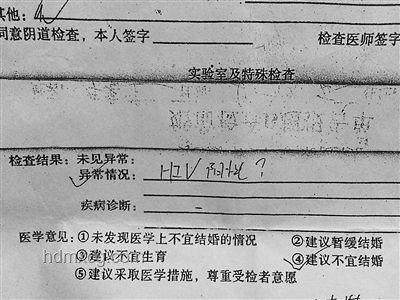 其他:
同意阴道检查，本人签字 检查医师签字
实验室及特殊检查
检查结果：未见异常：
异常情况：HIV
疾病诊断：
医学意见：①未发现医学上不宜结婚的情况 ②建议暂缓结婚
③建议不宜生育 ④建议不宜结婚
⑤建议采取医学措施，尊重受检者意愿